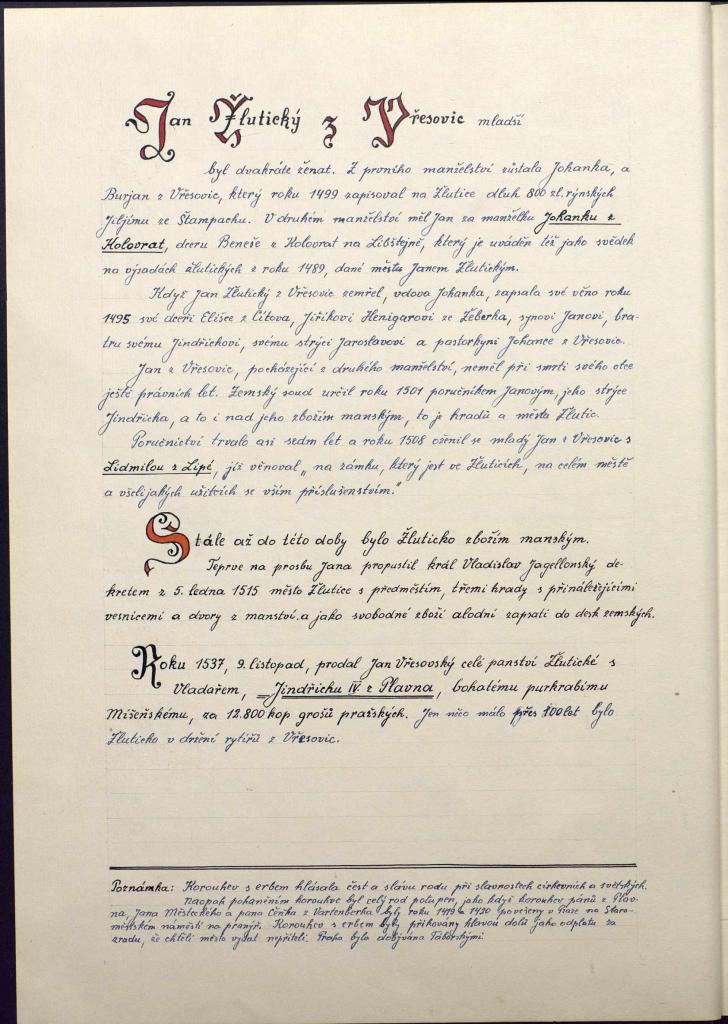 Jan Žlutický z Vřesovic mladší
byl dvakráte ženat. Z prvního manželství zůstala Johanka, a
Burjan z Vřesovic, který roku 1499 zapisoval na Žlutice dluh 800 zl. rýnských
Jiljímu ze Štampachu. V druhém manželství měl Jan za manželku Johanku z
Kolovrat, dceru Beneše z Kolovrat na Libštejně, který je uváděn též jako svědek
na výsadách žlutických z roku 1489, dané městu Janem Žlutickým.
Když Jan Žlutický z Vřesovic zemřel, vdova Johanka, zapsala své věno roku
1495 své dceři Elišce z Citova, Jiříkovi Henigarovi ze Žeberka, synovi Janovi, bra-
tru svému Jindřichovi, svému strýci Jaroslavovi a pastorkyni Johance z Vřesovic.
Jan z Vřesovic, pocházející z druhého manželství, neměl při smrti svého otce
ještě právních let. Zemský soud určil roku 1501 poručníkem Janovým, jeho strýce
Jindřicha, a to i nad jeho zbožím manským, to je hradů a města Žlutic.
Poručnictví trvalo asi sedm let a roku 1508 oženil se mladý Jan z Vřesovic s
Lidmilou z Lipé, jíž věnoval „na zámku, který jest ve Žluticích, na celém městě
a všelijakých užitcích se vším příslušenstvím."
Stále až do této doby bylo Žluticko zbožím manským.
Teprve na prosbu Jana propustil král Vladislav Jagellonský de-
kretem z 5. ledna 1515 město Žlutice s předměstím, třemi hrady s přináležejícími
vesnicemi a dvory z manství. a jako svobodné zboží alodní zapsati do desk zemských.
Roku 1537, 9. listopad, prodal Jan Vřesovský celé panství Žlutické s
Vladařem, – Jindřichu IV. z Plavna, bohatému purkrabímu
Míšeňskému, za 12.800 kop grošů pražských. Jen něco málo přes 100 let bylo
Žluticko v držení rytířů z Vřesovic.
Poznámka: Korouhev s erbem hlásala čest a slávu rodu při slavnostech církevních a světských.
Naopak pohaněním korouhve byl celý rod potupen, jako když korouhev pánů z Plav-
na, Jana Městeckého a pana Čeňka z Vartenberka byly roku 1419 a 1420 pověšeny v Praze na Staro-
městském náměstí na pranýř. Korouhev s erbem byly přikovány hlavou dolů jako odplatu za
zradu, že chtěli město vydat nepříteli. Praha byla dobývána Táborskými.